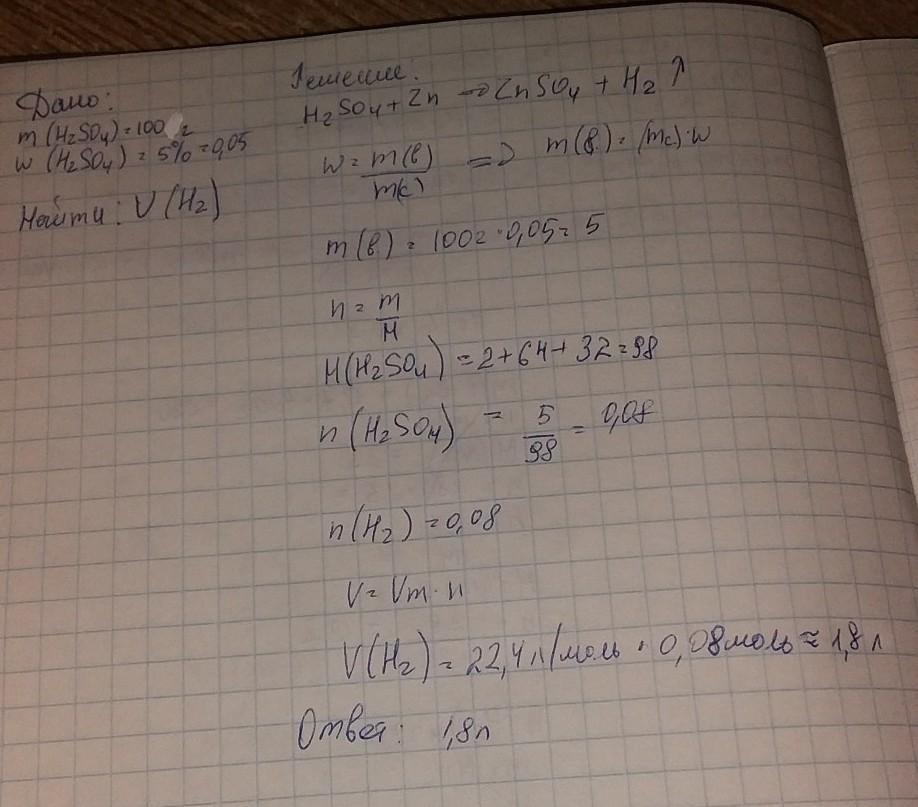 Дано:
m (H₂SO₄) = 100 г
w (H₂SO₄) = 5% = 0,05
Найти: V (H₂)
Решение:
H₂SO₄ + Zn → ZnSO₄ + H₂ ↑
w = m(в)/m(с) => m(в) = (mс)·w
m(в) = 100г · 0,05 = 5
n = m/M
M(H₂SO₄) = 2+64+32=98
n (H₂SO₄) = 5/98 = 0,08
n(H₂) = 0,08
V = Vm · n
V(H₂) = 22,4 л/моль · 0,08моль ≈ 1,8 л
Ответ: 1,8л